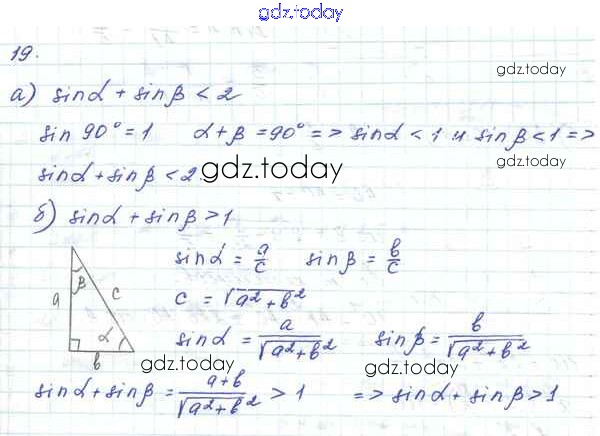 gdz.today
19.
gdz.today
а) sinα + sinβ < 2
sin 90° = 1 α + β = 90° => sinα < 1 и sinβ < 1 =>
gdz.today
sinα + sinβ < 2 gdz.today
б) sinα + sinβ > 1
sinα = a/c sinβ = b/c
β
a c
c = √(a² + b²)
α
sinα = a/√(a² + b²) sinβ = b/√(a² + b²)
b
gdz.today gdz.today
sinα + sinβ = (a + b)/√(a² + b²) > 1 => sinα + sinβ > 1
gdz.today